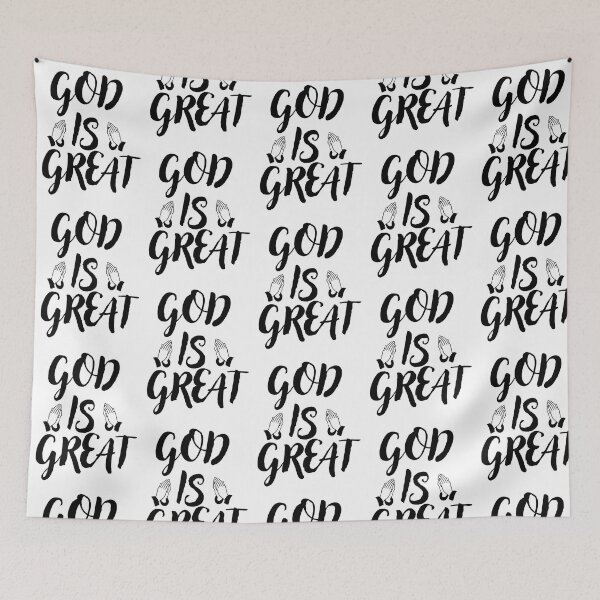 GOD
IS
GREAT
GOD
IS
GREAT
GOD
IS
GREAT
GOD
IS
GREAT
GOD
IS
GREAT
GOD
IS
GREAT
GOD
IS
GREAT
GOD
IS
GREAT
GOD
IS
GREAT
GOD
IS
GREAT
GOD
IS
GREAT
GOD
IS
GREAT
GOD
IS
GREAT
GOD
IS
GREAT
GOD
IS
GREAT
GOD
IS
GREAT
GOD
IS
GREAT
GOD